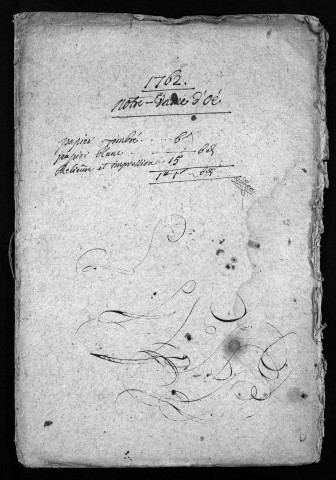 1762.
Notre-Dame d'Oé
papier timbré . . . 6ˢ
papier blanc . . . 6ᵈ
Relieure et impression . 15ˢ
1ᵗᵗ 1ˢ 6ᵈ